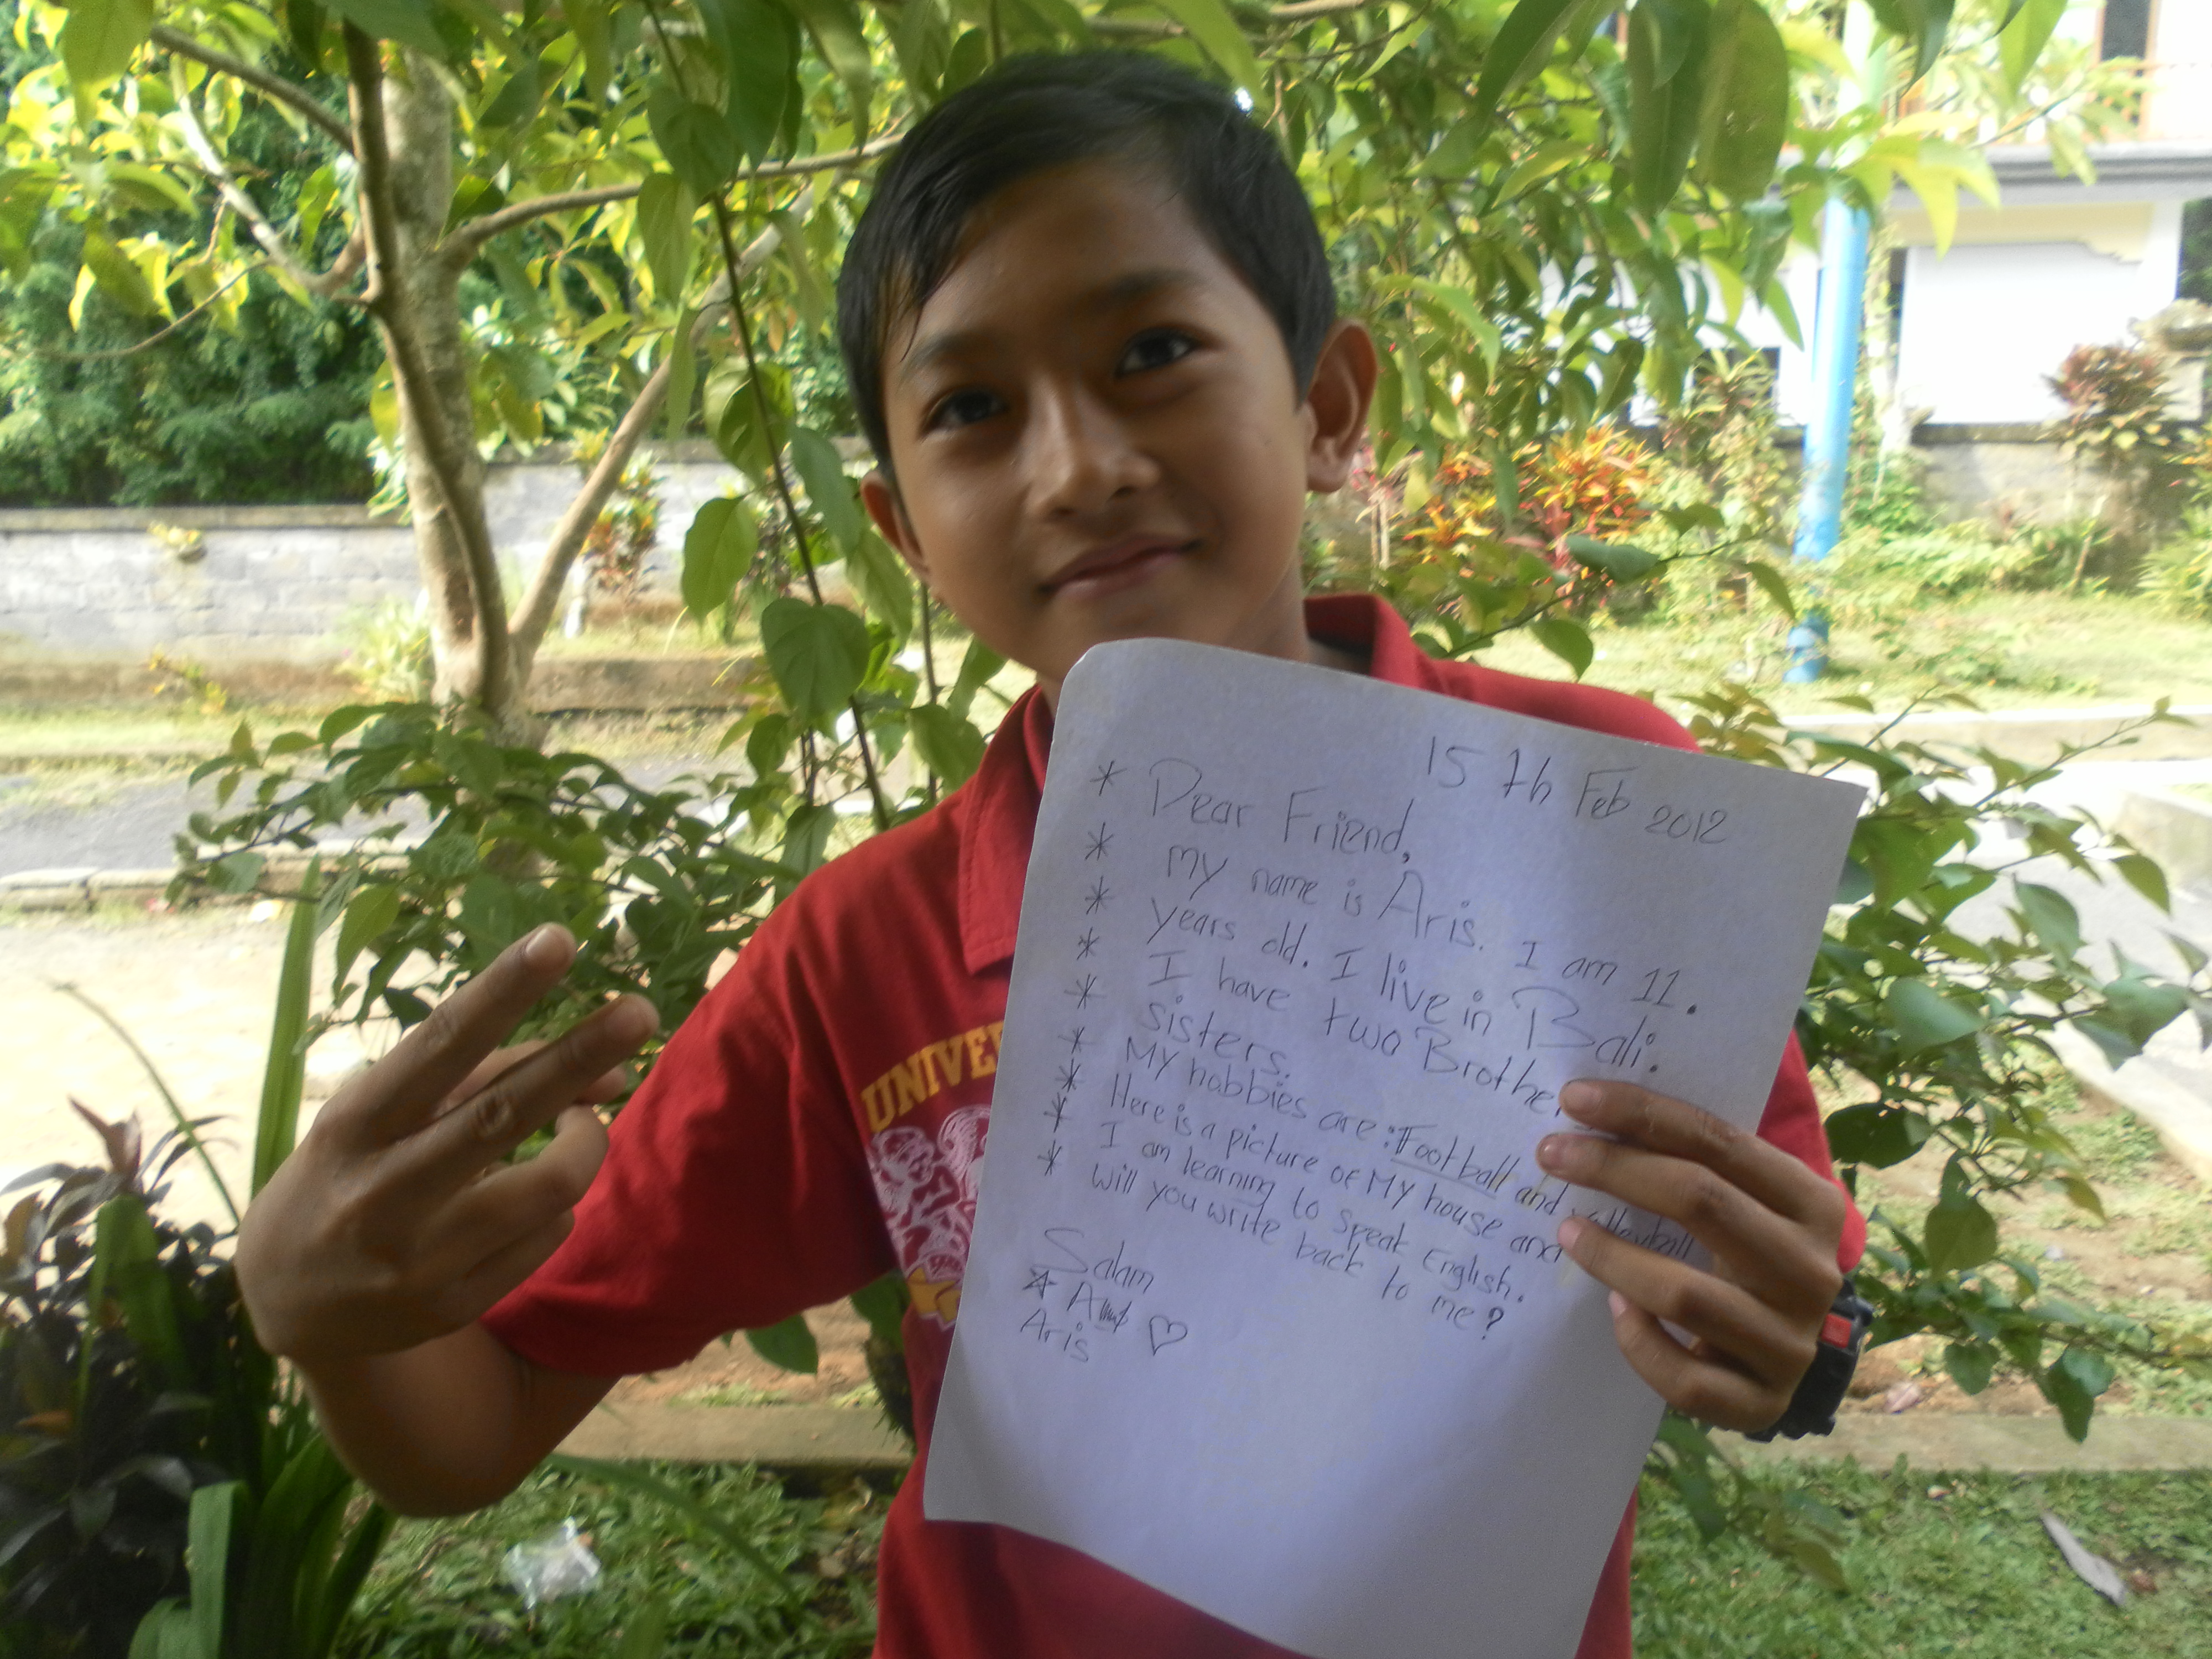 15 th Feb 2012
* Dear Friend,
* My name is Aris. I am 11.
* years old. I live in Bali.
* I have two Brothe
* sisters.
* My hobbies are: Football and volleyball
* Here is a picture of My house and
* I am learning to speak English.
* will you write back to me?
Salam
Aris
UNIVE